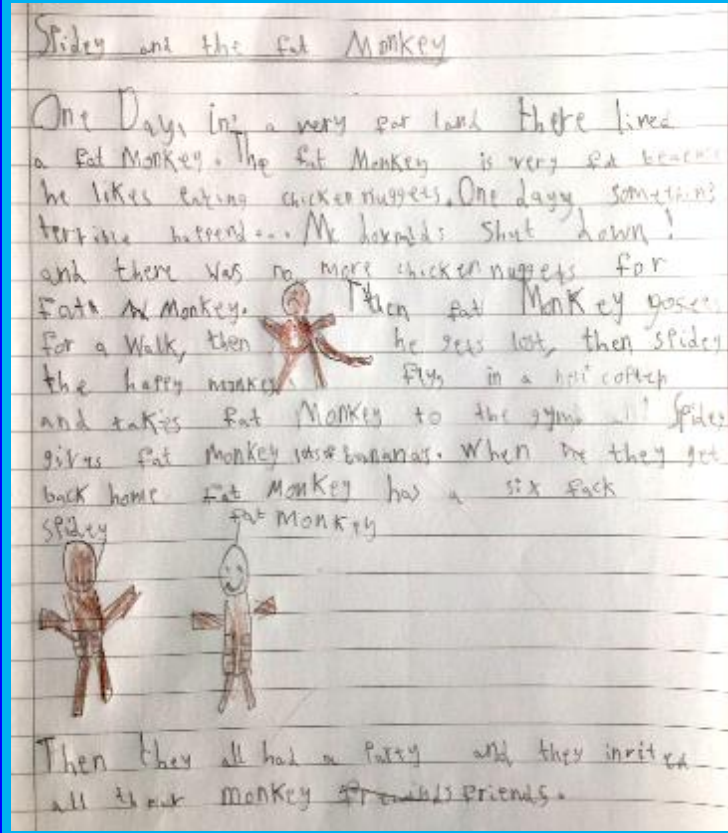 Spidey and the fat Monkey
One Day, in a very far land there lived
a fat Monkey. The fat Monkey is very fat because
he likes eating chicken nuggets. One dayy something
terrible happend... Mc donalds shut down!
and there was no more chicken nuggets for
Fat Monkey. Then fat Monkey goses
for a walk, then he gets lost, then spidey
the happy monkey flys in a helicopter
and takes fat Monkey to the gym Spidey
gives fat monkey lots of bananas. When they get
back home fat Monkey has a six pack
spidey fat monkey
Then they all had a party and they invited
all their monkey friends.